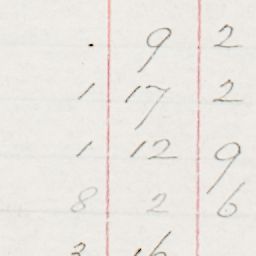 . 9 2
1 17 2
1 12 9
8 2 6
3 16